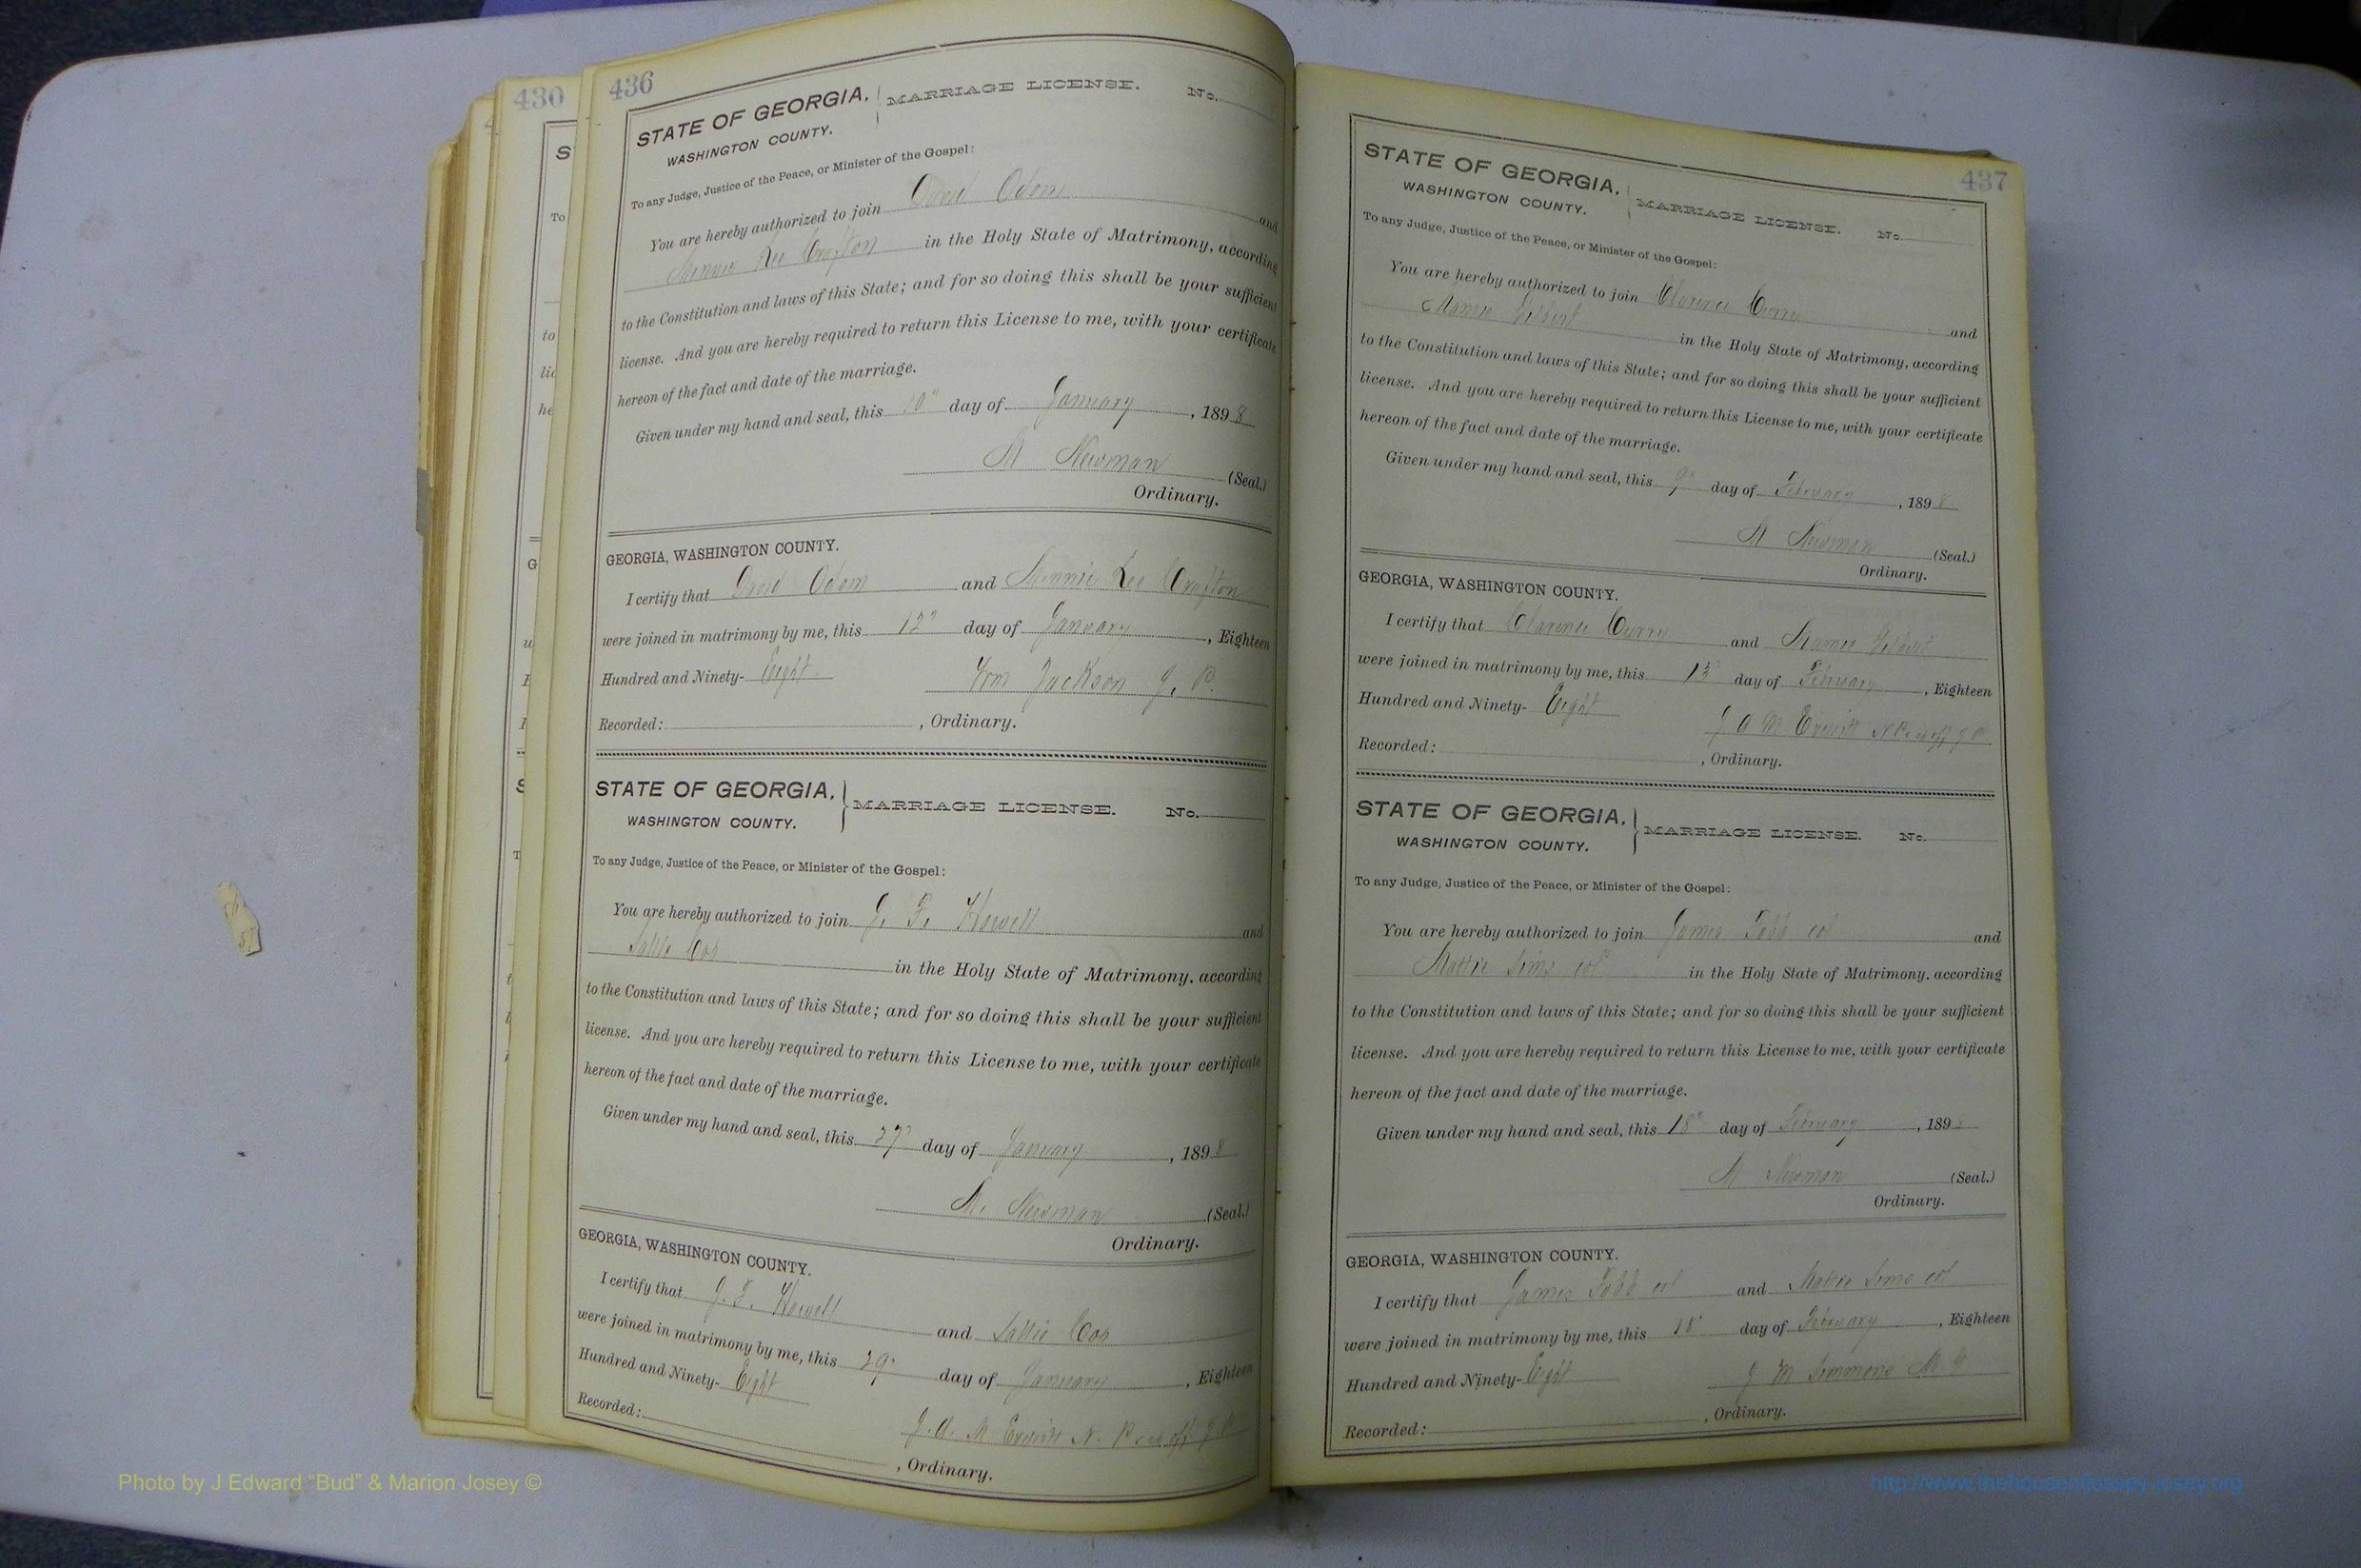 430
436
STATE OF GEORGIA, MARRIAGE LICENSE. No.
WASHINGTON COUNTY.
To any Judge, Justice of the Peace, or Minister of the Gospel:
You are hereby authorized to join David Odom and
Minnie Lee Crafton in the Holy State of Matrimony, according
to the Constitution and laws of this State; and for so doing this shall be your sufficient
license. And you are hereby required to return this License to me, with your certificate
hereon of the fact and date of the marriage.
Given under my hand and seal, this 10" day of January, 1898
M Newman (Seal.)
Ordinary.
GEORGIA, WASHINGTON COUNTY.
I certify that David Odom and Minnie Lee Crafton
were joined in matrimony by me, this 12" day of January, Eighteen
Hundred and Ninety- Eight Wm Jackson J. P.
Recorded: , Ordinary.
STATE OF GEORGIA, MARRIAGE LICENSE. No.
WASHINGTON COUNTY.
To any Judge, Justice of the Peace, or Minister of the Gospel:
You are hereby authorized to join J. F. Howell and
Sallie Cox in the Holy State of Matrimony, according
to the Constitution and laws of this State; and for so doing this shall be your sufficient
license. And you are hereby required to return this License to me, with your certificate
hereon of the fact and date of the marriage.
Given under my hand and seal, this 27" day of January, 1898
M. Newman (Seal.)
Ordinary.
GEORGIA, WASHINGTON COUNTY.
I certify that J. F. Howell and Sallie Cox
were joined in matrimony by me, this 29" day of January, Eighteen
Hundred and Ninety- Eight
J. A. M Everitt N. P. & ex off J P
Recorded: , Ordinary.
437
STATE OF GEORGIA, MARRIAGE LICENSE. No.
WASHINGTON COUNTY.
To any Judge, Justice of the Peace, or Minister of the Gospel:
You are hereby authorized to join Clarence Curry and
Mamie in the Holy State of Matrimony, according
to the Constitution and laws of this State; and for so doing this shall be your sufficient
license. And you are hereby required to return this License to me, with your certificate
hereon of the fact and date of the marriage.
Given under my hand and seal, this 9" day of February, 1898
M Newman (Seal.)
Ordinary.
GEORGIA, WASHINGTON COUNTY.
I certify that Clarence Curry and Mamie
were joined in matrimony by me, this 13" day of February, Eighteen
Hundred and Ninety- Eight J A M Everitt N P & ex off J P
Recorded: , Ordinary.
STATE OF GEORGIA, MARRIAGE LICENSE. No.
WASHINGTON COUNTY.
To any Judge, Justice of the Peace, or Minister of the Gospel:
You are hereby authorized to join James col and
Mattie Sims col in the Holy State of Matrimony, according
to the Constitution and laws of this State; and for so doing this shall be your sufficient
license. And you are hereby required to return this License to me, with your certificate
hereon of the fact and date of the marriage.
Given under my hand and seal, this 18" day of February, 1898
M Newman (Seal.)
Ordinary.
GEORGIA, WASHINGTON COUNTY.
I certify that James col and Mattie Sims col
were joined in matrimony by me, this 18" day of February, Eighteen
Hundred and Ninety- Eight J M Simmons M. G
Recorded: , Ordinary.
Photo by J Edward "Bud" & Marion Josey ©
http://www.thehouseofjossey-josey.org